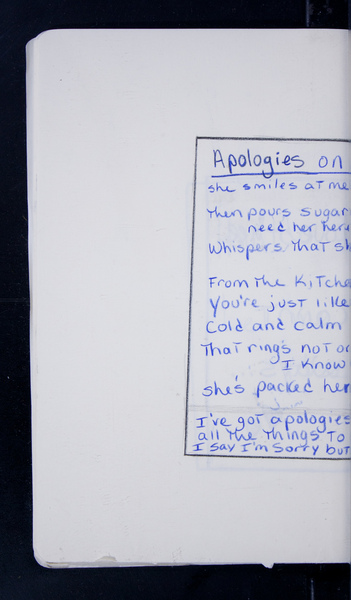 Apologies on
she smiles at me
Then pours sugar
need her here
Whispers that sh
From the Kitche
You're just like
Cold and calm
That ring's not or
I know
she's packed her
I've got apologies
all the things to
I say I'm sorry but